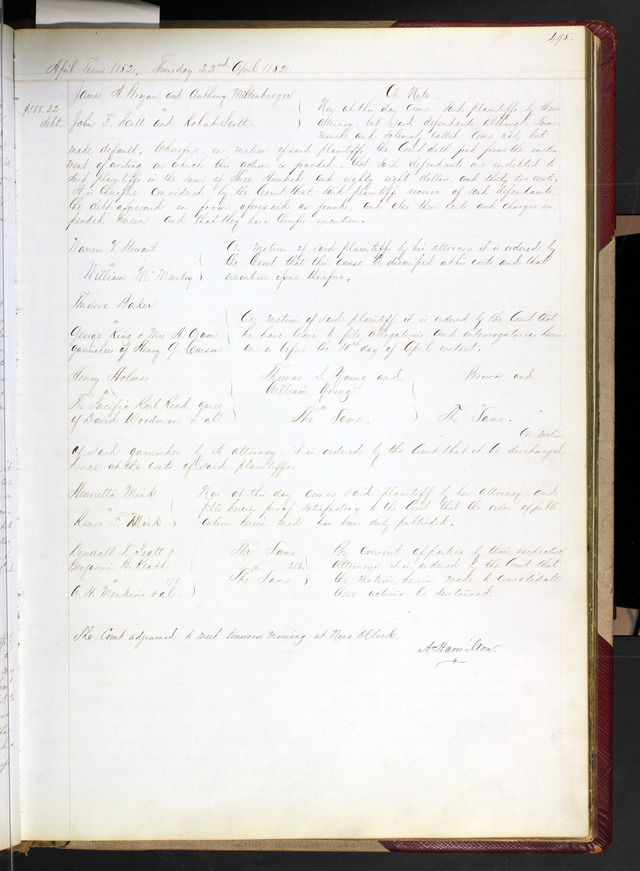 495.
April Term 1852. Thursday 22nd April 1852.
James A Bryan and Anthony Miltenberger
vs
John T. Scott and Robert Scott.
$388.32
debt.
On Note.
Now at this day come said plaintiffs by their
attorney, but said defendants although sum
moned and solemnly called come not, but
make default, Wherefore, on motion of said plaintiffs, the Court doth find from the instru-
ment of writing on which this action is founded, that said defendants are indebted to
said plaintiffs in the sum of Three Hundred and eighty eight dollars, and thirty two cents,
It is therefore considered by the Court that said plaintiffs recover of said defendants
the debt aforesaid in form aforesaid as found, and also their costs and charges ex-
pended herein, and that they have therefor execution.
Stewart
vs
William
On motion of said plaintiff by his attorney it is ordered by
the Court that this cause be dismissed at his costs and that
execution issue therefore.
Theodore Baker
vs
George King &
garnishees of Henry G.
On motion of said plaintiff it is ordered by the Court that
he have leave to file allegations and interrogatories herein
on or before the 30th day of April instant.
Henry Holmes
vs
The Pacific Rail Road garee
of David Woodman & al
Thomas S. Young and
William Young
vs
The Same.
Brown and
vs
The Same.
On motion
of said garnishee by its attorney, it is ordered by the Court that it be discharged
hence at the costs of said plaintiffs.
Henrietta Mink
vs
Mink
Now at this day comes said plaintiff by her attorney, and
files herein proof satisfactory to the Court that the order of publi
cation herein made has been duly published.
Pratt &
Benjamin
vs
A. H. & al.
The Same
vs
The Same
By consent of parties by their respective
attorneys it is ordered by the Court that
the motion herein made to consolidate
these actions be sustained
The Court adjourned to meet tomorrow morning at Nine OClock.
A Hamilton.